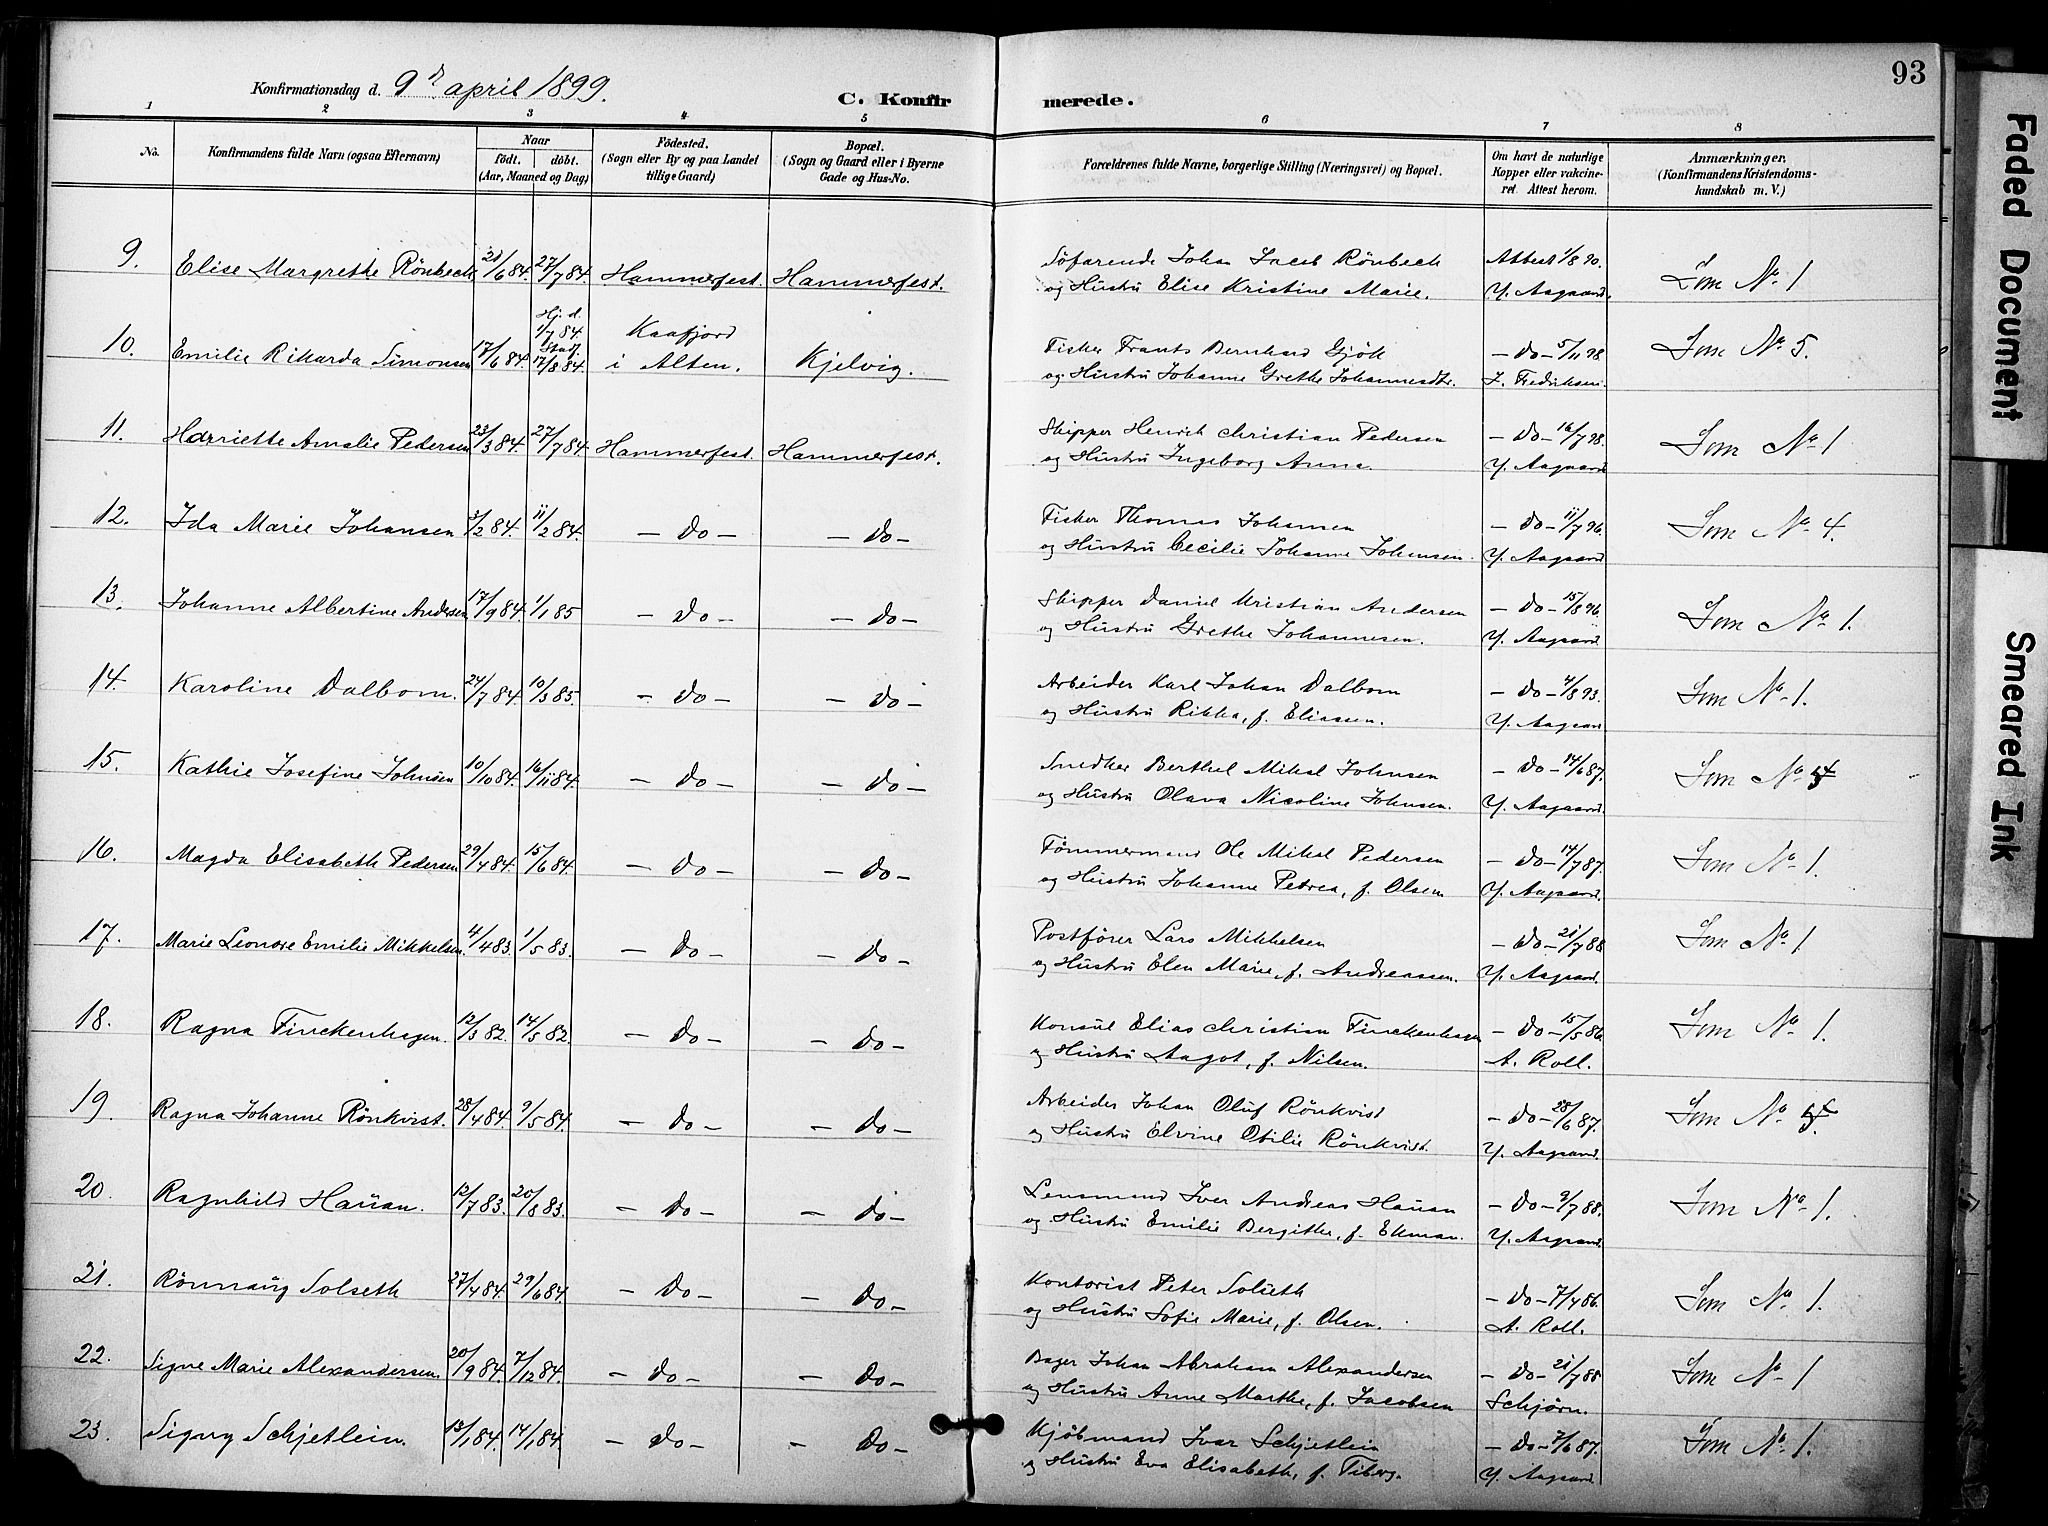 93
Konfirmationsdag d. 9de april 1899.
C. Konfirmerede.
1 2 3 4 5 6 7 8
No.
Konfirmandens fulde Navn (ogsaa Efternavn)
Naar
født. døbt.
(Aar, Maaned og Dag)
Fødested.
(Sogn eller By og paa Landet
tillige Gaard)
Bopæl.
(Sogn og Gaard eller i Byerne
Gade og Hus-No.
Forældrenes fulde Navne, borgerlige Stilling (Næringsvei) og Bopæl.
Om havt de naturlige
Kopper eller vakcine-
ret. Attest herom.
Anmærkninger.
(Konfirmandens Kristendoms-
kundskab m. V.)
9. Elise Margrethe Rönbech 21/6 84. 27/7 84. Hammerfest. Hammerfest. Söfarende Johan Jacob Rönbech Attest 1/8 90. Som No 1
og Hustru Elise Kristine Marie. Y. Aagaard.
10. Emilie Rikarda Simonsen 17/6 84. Hj. d. 1/7 84. Stadf. 17/8 84. Kaafjord i Alten. Kjelvig. Fisker Frants Bernhard Gjök - do - 5/11 98. Som No 5.
og Hustru Johanne Grethe Johannesdtr. J. Fredriksen.
11. Harriette Amalie Pedersen 23/3 84. 27/7 84. Hammerfest. Hammerfest. Skipper Henrik Christian Pedersen - do - 16/7 98. Som No 1
og Hustru Ingeborg Anna. Y. Aagaard
12. Ida Marie Johansen 3/2 84. 11/2 84. - do - - do - Fisker Thomas Johansen - do - 11/7 96. Som No 4.
og Hustru Cecilie Johanne Johansen. Y. Aagaard
13. Johanne Albertine Andersen 17/9 84. 1/1 85 - do - - do - Skipper Daniel Kristian Andersen - do - 15/8 96. Som No 1.
og Hustru Grethe Johannesen. Y. Aagaard.
14. Karoline Dalbom. 24/7 84. 10/3 85. - do - - do - Arbeider Karl Johan Dalbom - do - 4/8 93. Som No 1.
og Hustru Rikka, f. Eliassen. Y. Aagaard.
15. Kathie Josefine Johnsen 10/10 84. 16/11 84. - do - - do - Snedker Berthel Mikal Johnsen - do - 14/6 87. Som No
og Hustru Olava Nicoline Johnsen. Y. Aagaard.
16. Magda Elisabeth Pedersen 29/4 84. 15/6 84. - do - - do - Tömmermand Ole Mikal Pedersen - do - 14/7 87. Som No 1.
og Hustru Johanne Petrea, f. Olsen Y. Aagaard.
17. Marie Leonore Emilie Mikkelsen. 4/4 83. 1/5 83. - do - - do - Postförer Lars Mikkelsen - do - 21/7 88. Som No 1
og Hustru Elen Marie, f. Andreassen. Y. Aagaard.
18. Ragna Finckenhagen. 12/3 82. 14/5 82. - do - - do - Konsul Elias Christian Finckenhagen - do - 15/5 86. Som No 1.
og Hustru Aagot, f. Nilsen. A. Roll.
19. Ragna Johanne Rönkvist. 28/4 84. 9/5 84. - do - - do - Arbeider Johan Oluf Rönkvist - do - 28/6 87. Som No
og Hustru Elvine Otilie Rönkvist. Y. Aagaard.
20. Ragnhild Hauan. 12/7 83. 20/8 83. - do - - do - Lensmand Iver Andreas Hauan - do - 9/7 88. Som No 1.
og Hustru Emilie Bergithe, f. Ekman. Y. Aagaard
21. Rönnaug Solseth 27/4 84. 29/6 84. - do - - do - Kontorist Peter Solseth - do - 7/4 86. Som No 1.
og Hustru Sofie Marie, f. Olsen. A. Roll.
22. Signe Marie Alexandersen. 20/9 84. 7/12 84. - do - - do - Bager Johan Abraham Alexandersen - do - 21/7 88 Som No 1
og Hustru Anne Marthe, f. Jacobsen Schjörn.
23. Signy Schjetlein. 13/1 84. 14/1 84. - do - - do - Kjöbmand Ivar Schjetlein - do - 7/6 87. Som No 1.
og Hustru Eva Elisabeth, f. Tiberg. Y. Aagaard
Faded Document
Smeared Ink